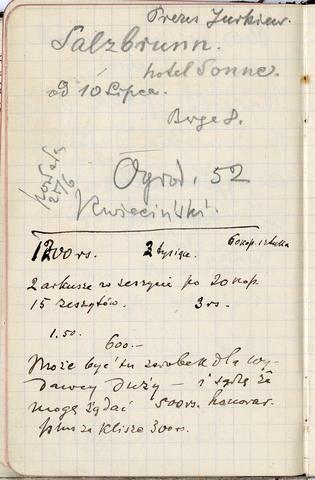 Prezes Jurkiew.
Salzbrunn.
hotel Sonne.
od 10 Lipca.
Ogrod. 52
Kwieciński.
1200 rs. 2 tysiące. 60 kop. sztuka
2 arkusze w zeszycie po 20 kop.
15 zeszytów. 3 rs.
1.50.
600.—
Może być tu zarobek dla wy-
dawcy duży — i sądzę że
mogę żądać 500 rs. honorar.
plus za klisze 300 rs.